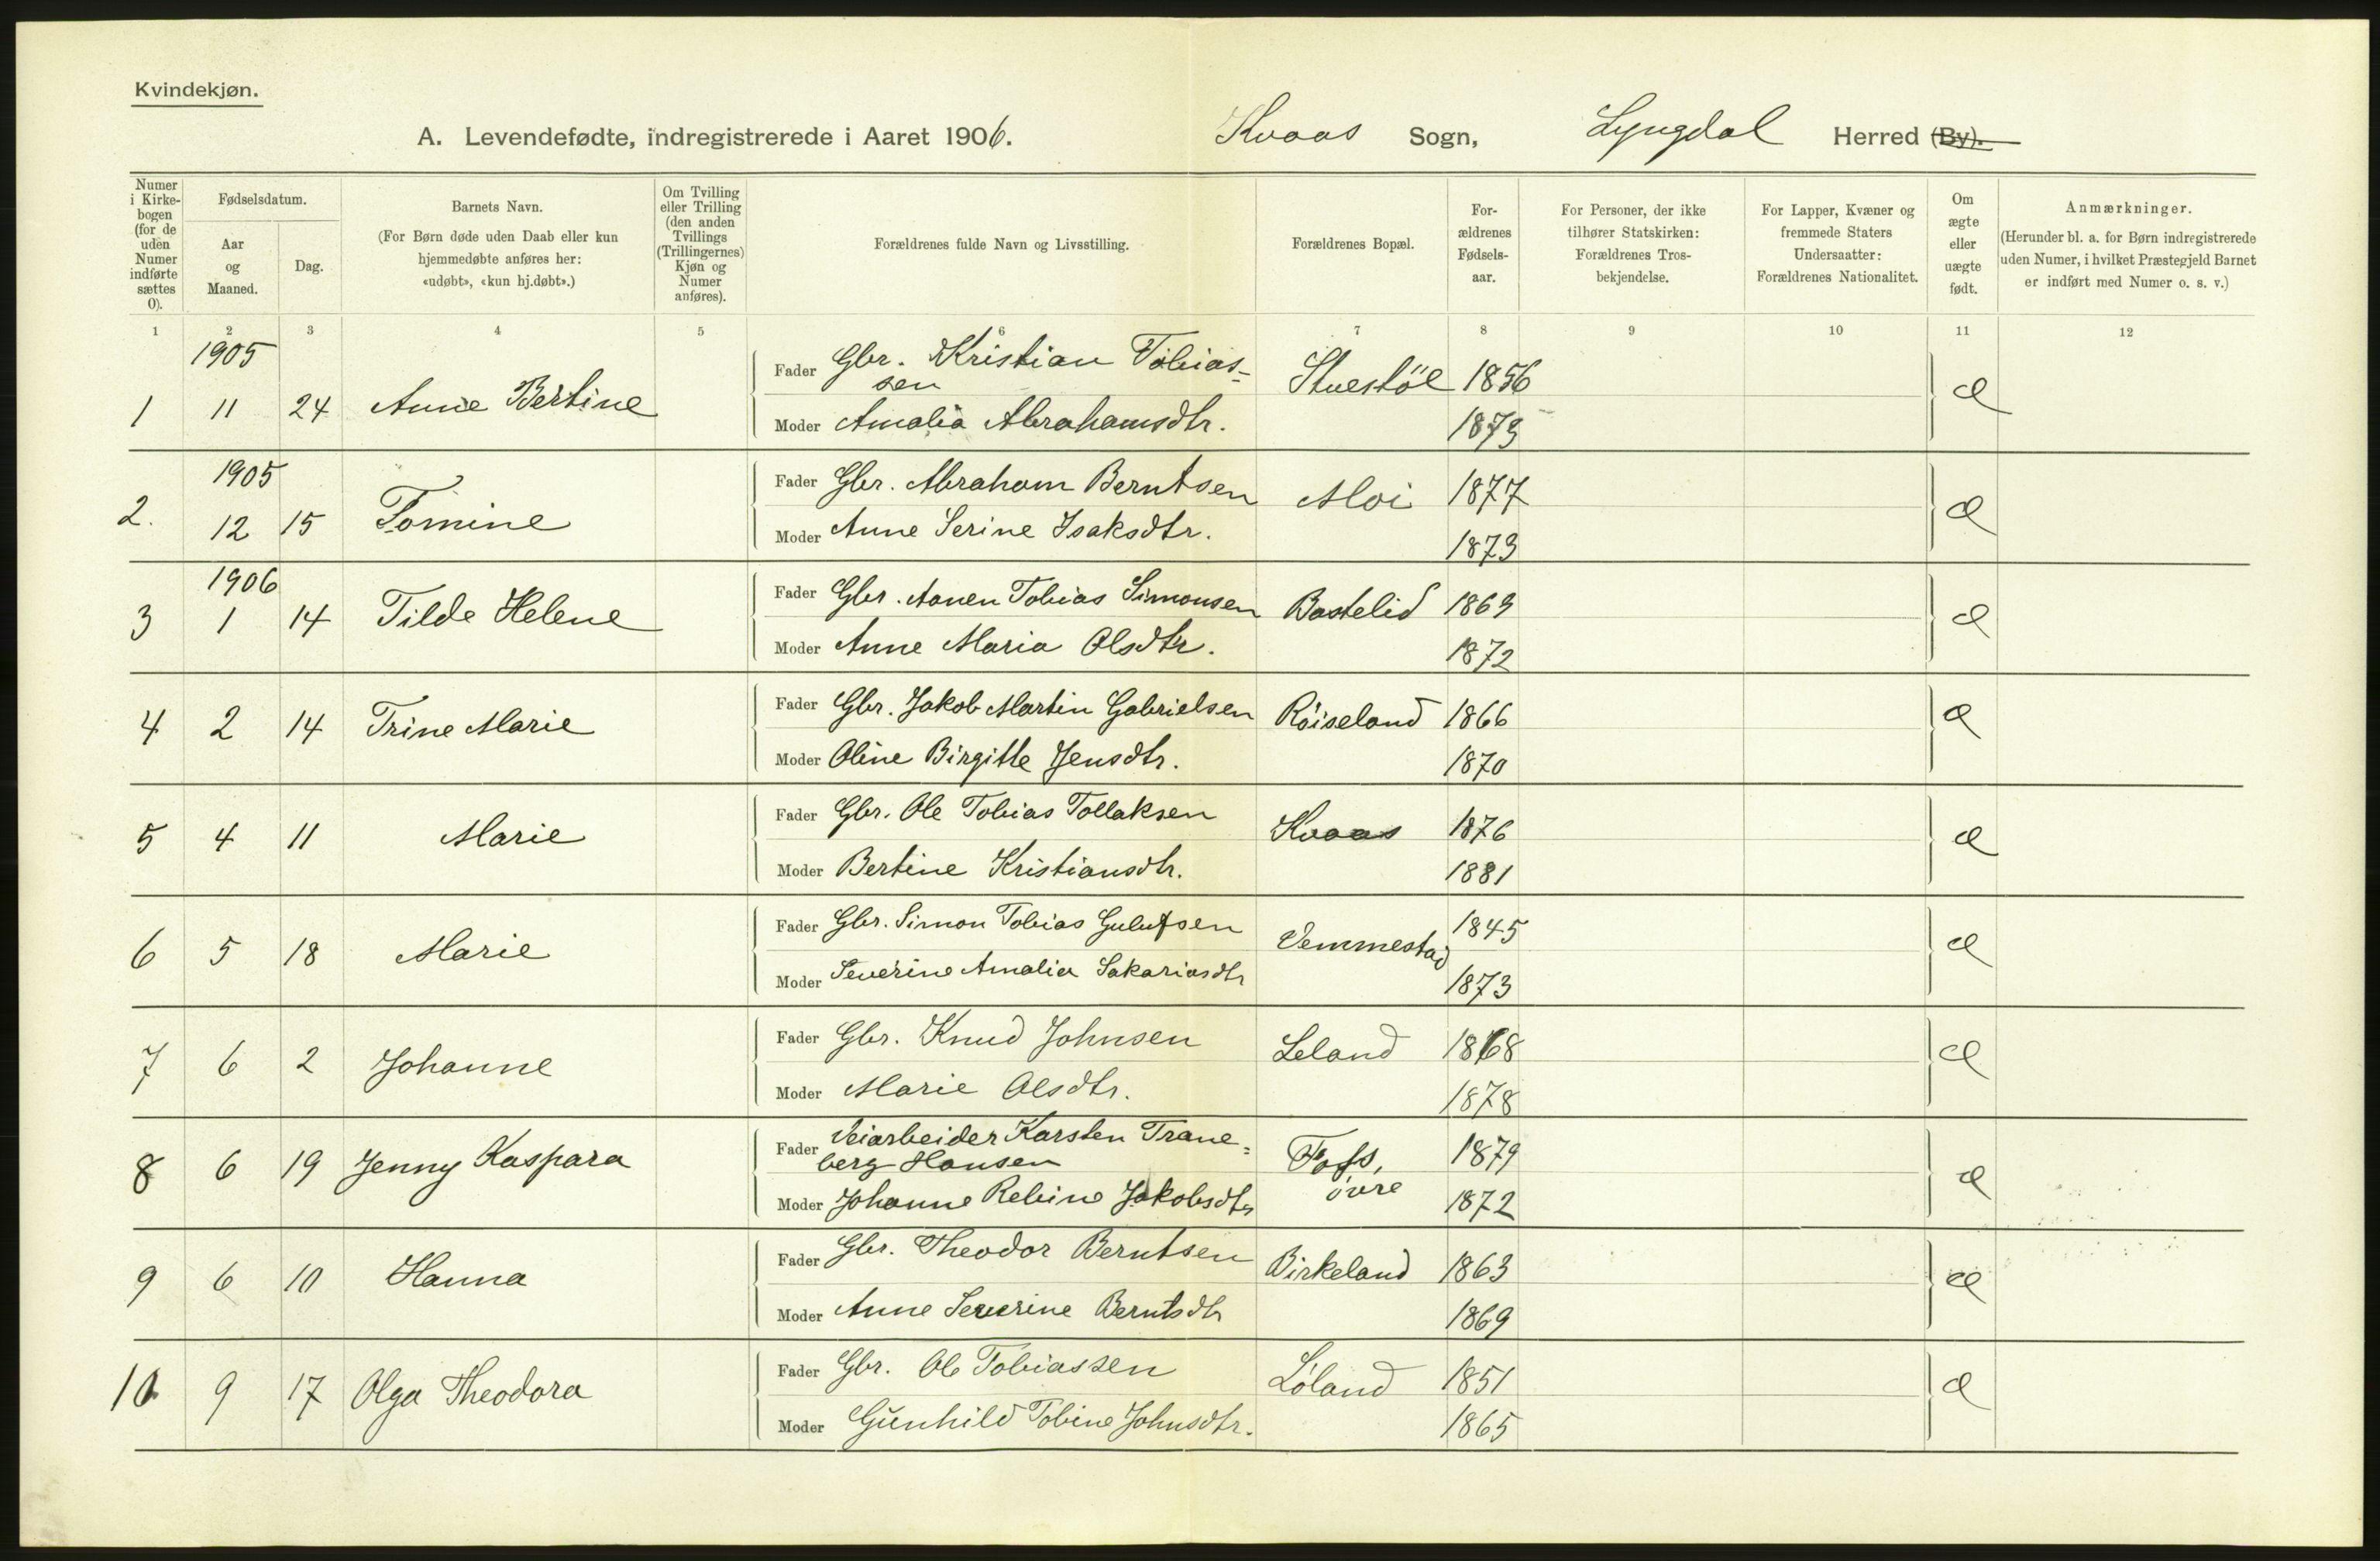 Kvindekjøn.
A. Levendefødte, indregistrerede i Aaret 1906. Kvaas Sogn, Lyngdal Herred (By).
Numer i Kirkebogen (for de uden Numer indførte sættes 0).
Fødselsdatum.
Aar og Maaned.
Dag.
Barnets Navn.
(For Børn døde uden Daab eller kun
hjemmedøbte anføres her:
«udøbt», «kun hj.døbt».)
Om Tvilling
eller Trilling
(den anden
Tvillings
(Trillingernes)
Kjøn og
Numer
anføres).
Forældrenes fulde Navn og Livsstilling.
Forældrenes Bopæl.
For-
ældrenes
Fødsels-
aar.
For Personer, der ikke
tilhører Statskirken:
Forældrenes Tros-
bekjendelse.
For Lapper, Kvæner og
fremmede Staters
Undersaatter:
Forældrenes Nationalitet.
Om
ægte
eller
uægte
født.
Anmærkninger.
(Herunder bl. a. for Børn indregistrerede
uden Numer, i hvilket Præstegjeld Barnet
er indført med Numer o. s. v.)
1 2 3 4 5 6 7 8 9 10 11 12
1905
1 11 24 Anne Bertine Fader Gbr. Kristian Tobias-
sen Stuestöl 1856 æ
Moder Amalia Abrahamsdtr. 1873
1905
2. 12 15 Tomine Fader Gbr. Abraham Berntsen Moi 1877 æ
Moder Anne Serine Isaksdtr. 1873
1906
3 1 14 Tilde Helene Fader Gbr. Aanen Tobias Simonsen Bastelid 1863 æ
Moder Anne Maria Olsdtr. 1872
4 2 14 Trine Marie Fader Gbr. Jakob Martin Gabrielsen Röiseland 1866 æ
Moder Oline Birgitte Jensdtr. 1870
5 4 11 Marie Fader Gbr. Ole Tobias Tollaksen Kvaas 1876 æ
Moder Bertine Kristiansdtr. 1881
6 5 18 Marie Fader Gbr. Simon Tobias Gulufsen Vemmestad 1845 æ
Moder Severine Amalia Sakariasdtr 1873
7 6 2 Johanne Fader Gbr. Knud Johnsen Leland 1868 æ
Moder Marie Olsdtr. 1878
8 6 19 Jenny Kaspara Fader Veiarbeider Karsten Trane-
berg Hansen 1879 æ
Moder Johanne Rebine Jakobsdtr øvre 1872
9 6 10 Hanna Fader Gbr. Theodor Berntsen Birkeland 1863 æ
Moder Anne Severine Berntsdtr 1869
10 9 17 Olga Theodora Fader Gbr. Ole Tobiassen Löland 1851 æ
Moder Gunhild Tobine Johnsdtr. 1865